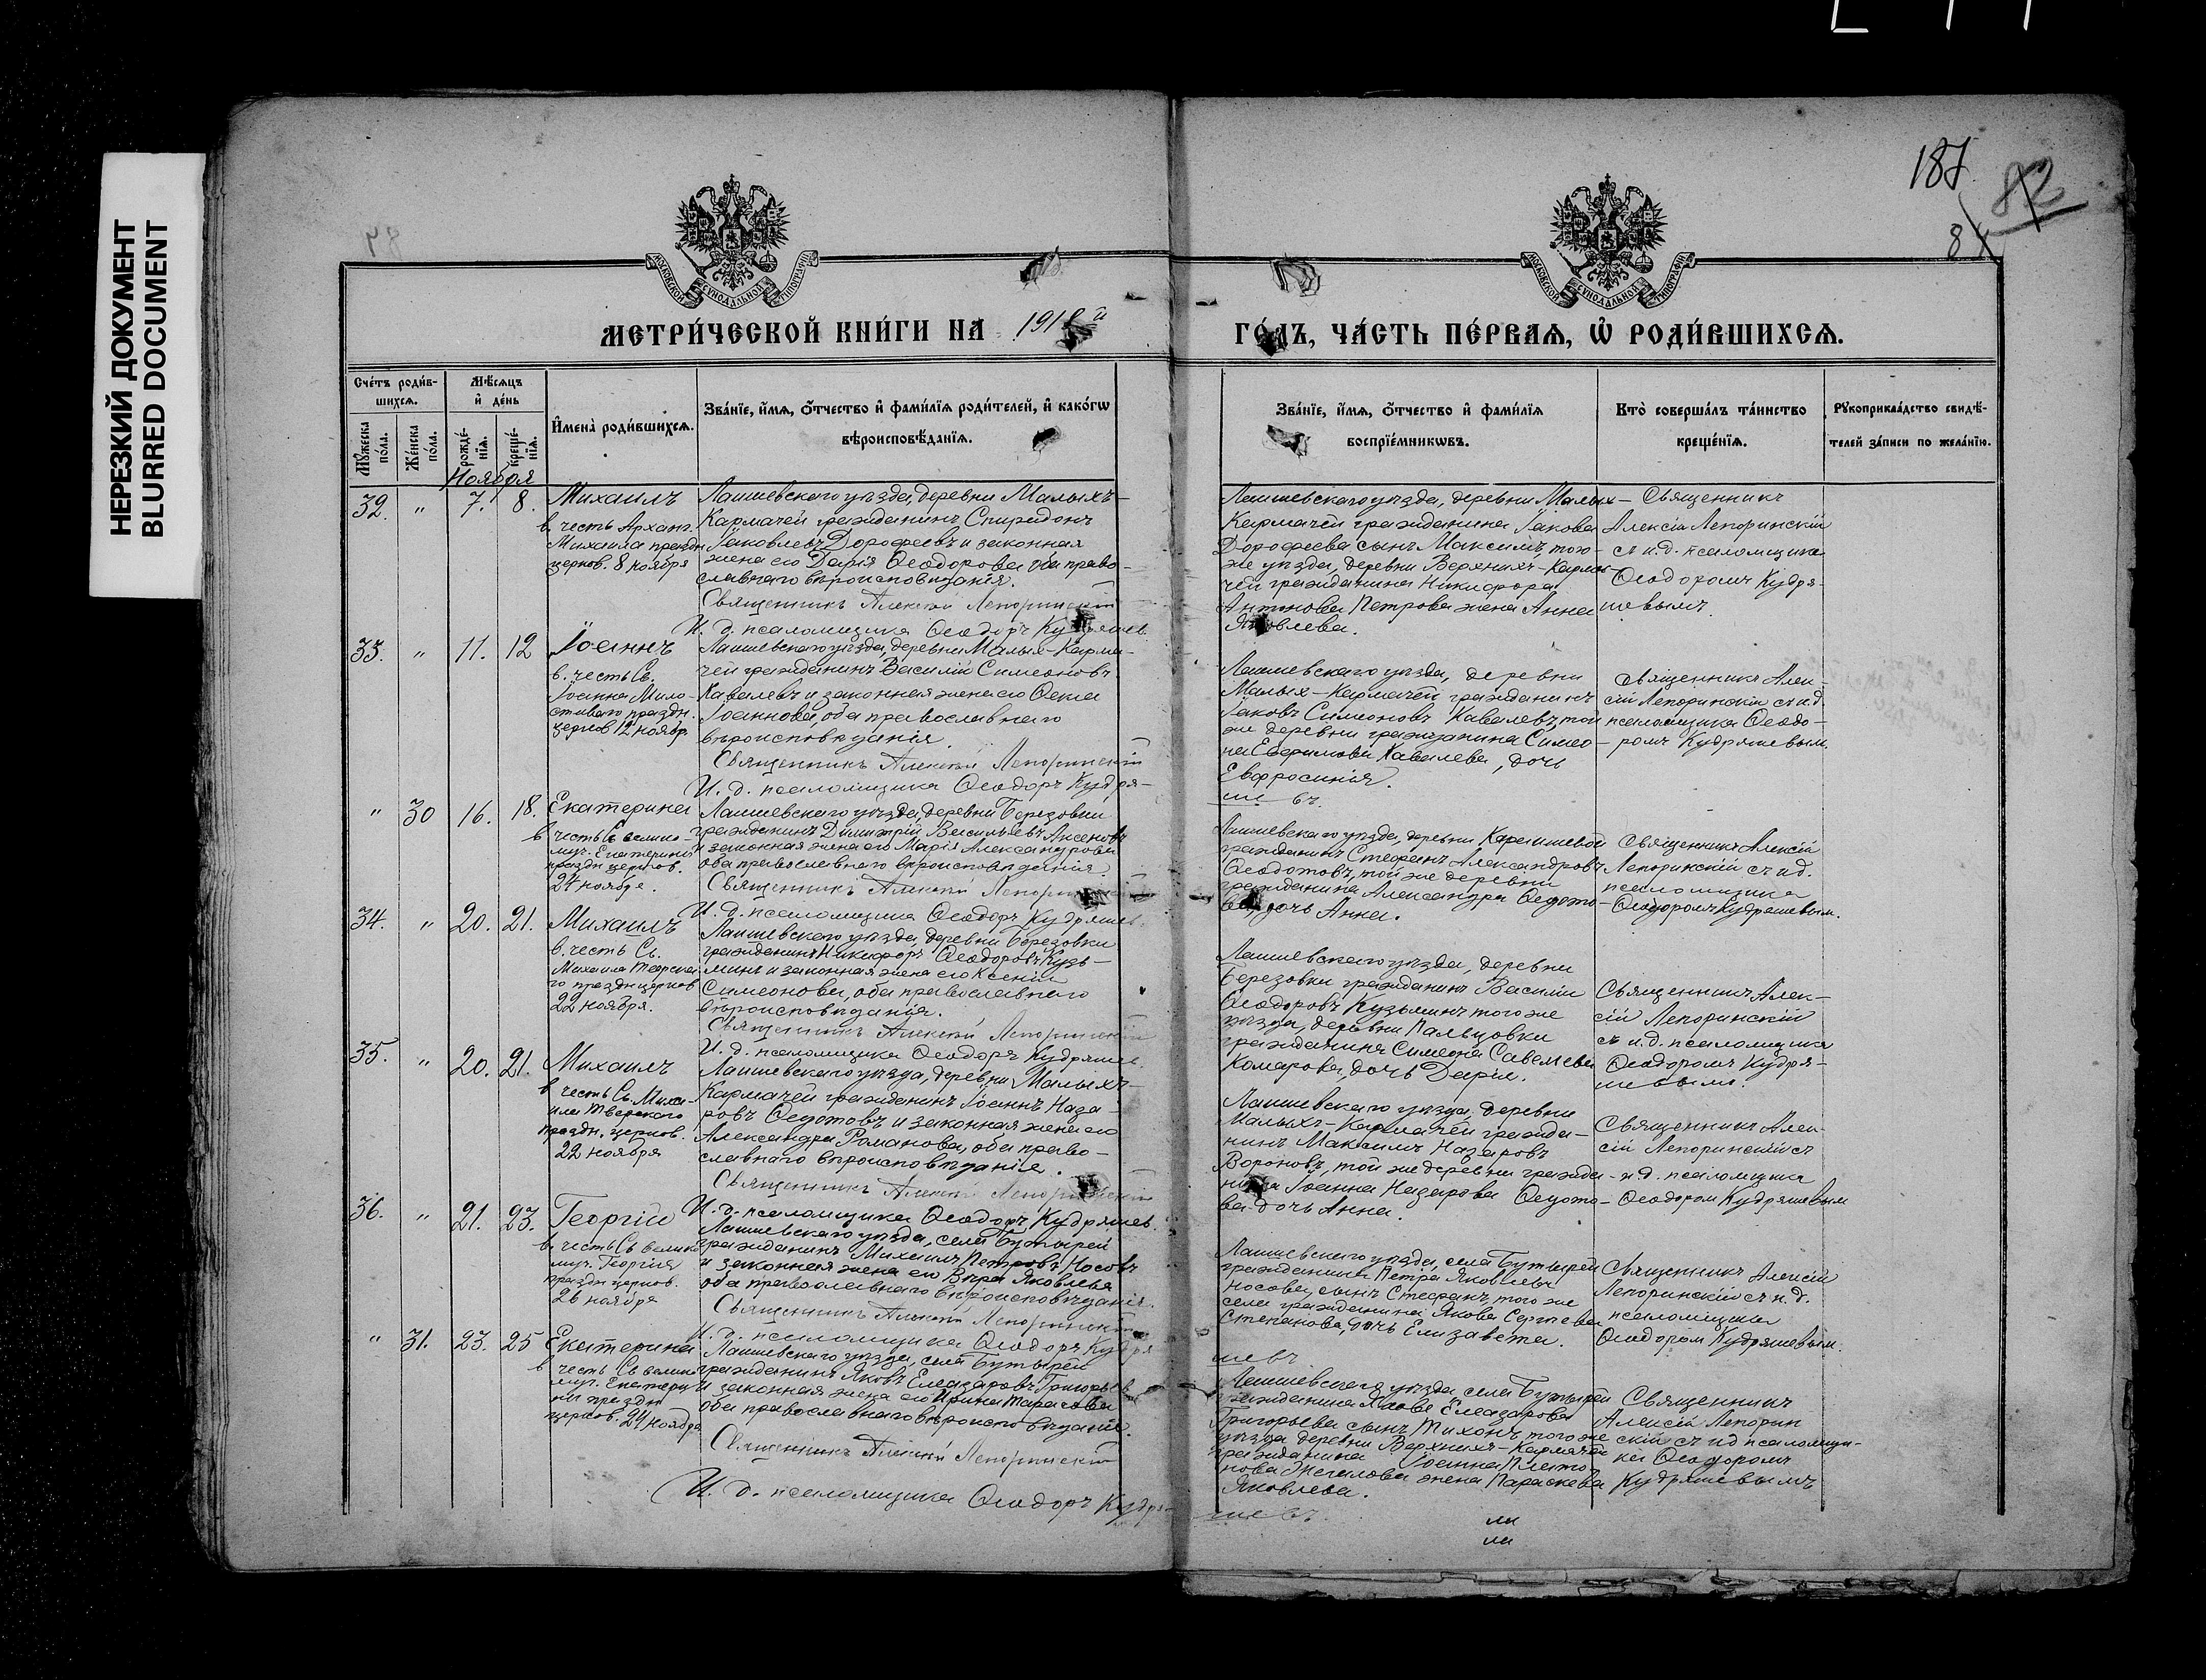 НЕРЕЗКИЙ ДОКУМЕНТ
BLURRED DOCUMENT
187
82
84
МОСКОВСКОЙ СУНОДАЛЬНОЙ ТИПОГРАФІИ
МОСКОВСКОЙ СУНОДАЛЬНОЙ ТИПОГРАФІИ
МЕТРИ́ЧЕСКОЙ КНИ́ГИ НА 1918й ГО́ДЪ, ЧА́СТЬ ПЕ́РВАѦ, Ѿ РОДИ́ВШИХСѦ.
Сче́тъ роди́в-
шихсѧ.
Мꙋ́жеска по́ла.
Же́нска по́ла.
Мѣ́сѧцъ и҆ де́нь
рожде́-нїѧ.
креще́-нїѧ.
И҆мена̀ роди́вшихсѧ.
Зва́нїе, и҆́мѧ, ѻ҆́тчество и҆ фами́лїѧ роди́телей, и҆ како́гѡ
вѣроисповѣ́данїѧ.
Зва́нїе, и҆́мѧ, ѻ҆́тчество и҆ фами́лїѧ
воспрїе́мникѡвъ.
Кто̀ соверша́лъ та́инство
креще́нїѧ.
Рꙋкоприкла́дство свидѣ́-
телей за́писи по жела́нїю.
Ноября
32. " 7. 8. Михаилъ
в. честь Арханг.
Михаила праздн
церков. 8 ноября
Лаишевскаго уѣзда, деревни Малыхъ-
Кармачей гражданинъ Спиридонъ
Іаковлевъ Дорофеевъ и законная
жена его Дарія Ѳеодорова, оба право-
славнаго вѣроисповѣданія.
Священникъ Алексій Лепоринскій
И. д. псаломщика Ѳеодоръ Кудряшев.
Лаишевскаго уѣзда, деревни Малых-
Кармачей гражданина Іакова
Дорофеева сынъ Максимъ, того-
же уѣзда, деревни Верхнихъ-Карма-
чей гражданина Никифора
Антонова Петрова жена Анна
Яковлева.
Священникъ
Алексій Лепоринскій
съ и. д. псаломщика
Ѳеодоромъ Кудря-
шевымъ.
33. " 11. 12 Іоаннъ
в. честь Св.
Іоанна Мило-
стиваго праздн.
церков 12 ноябр
Лаишевскаго уѣзда, деревни Малых-Карма-
чей гражданинъ Василій Симеоновъ
Кавалевъ и законная жена его Ѳекла
Іоаннова, оба православнаго
вѣроисповѣданія.
Священникъ Алексій Лепоринскій
И. д. псаломщика Ѳеодоръ Кудря-
шевъ.
Лаишевскаго уѣзда, деревни
Малых-Кармачей гражданинъ
Іаковъ Симеоновъ Кавалевъ, той
же деревни гражданина Симео-
на Ефримова Кавалева, дочь
Евфросинія.
Священникъ Алек-
сій Лепоринскій съ и.д.
псаломщика Ѳеодо-
ромъ Кудряшевым.
" 30 16. 18. Екатерина
в честь Св велико-
муч. Екатерины
праздн церков.
24 ноября.
Лаишевскаго уѣзда, деревни Березовки
гражданинъ Димитрій Васильевъ Аксеновъ
и законная жена его Марія Александрова
оба православнаго вѣроисповѣданія.
Священникъ Алексій Лепоринскій
И. д. псаломщика Ѳеодоръ Кудряшев.
Лаишевскаго уѣзда, деревни Карашевой
гражданинъ Стефанъ Александровъ
Ѳеодотовъ, той же деревни
гражданина Александра Ѳедото-
ва, дочь Анна.
Священникъ Алексій
Лепоринскій съ и д.
псаломщика
Ѳеодоромъ Кудряшевым.
34. " 20. 21. Михаилъ
в. честь Св.
Михаила Тверска
го праздн церков
22 ноября.
Лаишевскаго уѣзда, деревни Березовки
гражданинъ Никифоръ Ѳеодоровъ Кузь-
минъ и законная жена его Ксенія
Симеонова, оба православнаго
вѣроисповѣданія.
Священникъ Алексій Лепоринскій
И. д. псаломщика Ѳеодоръ Кудряшев.
Лаишевскаго уѣзда, деревни
Березовки гражданинъ Василій
Ѳеодоровъ Кузьминъ того же
уѣзда, деревни Пальцовки
гражданина Симеона Савельева
Комарова, дочь Дарія.
Священникъ Алек-
сій Лепоринскій
съ и. д. псаломщика
Ѳеодоромъ Кудря-
шевымъ.
35. " 20. 21. Михаилъ
в честь Св. Миха-
ила Тверского
праздн. церков.
22 ноября
Лаишевскаго уѣзда, деревни Малыхъ-
Кармачей гражданинъ Іоаннъ Наза-
ровъ Ѳедотовъ и законная жена его
Александра Романова, оба право-
славнаго вѣроисповѣданія.
Священникъ Алексій Лепоринскій
И. д. псаломщика Ѳеодоръ Кудряшев.
Лаишевскаго уѣзда, деревни
Малыхъ-Кармачей гражда-
нинъ Максимъ Назаровъ
Вороновъ, той же деревни гражда-
нина Іоанна Назарова Ѳедото-
ва дочь Анна.
Священникъ Алек-
сій Лепоринскій съ
и. д. псаломщика
Ѳеодором Кудряшевым
36. " 21. 23. Георгій
в. честь Св велико
муч. Георгія
праздн церков.
26 ноября
Лаишевскаго уѣзда, села Бутырей
гражданинъ Михаилъ Петровъ Носовъ
и законная жена его Вѣра Яковлева
оба православнаго вѣроисповѣданія.
Священникъ Алексій Лепоринскій
И. д. псаломщика Ѳеодоръ Кудря
шевъ
Лаишевскаго уѣзда, села Бутырей
гражданина Петра Яковлева
Носова, сынъ Стефанъ, того же
села гражданина Якова Сергѣева
Степанова, дочь Елизавета.
Священникъ Алексій
Лепоринскій съ и. д.
псаломщика
Ѳеодором Кудряшевым.
" 31. 23. 25 Екатерина
в честь Св велико
муч. Екатери
ны праздн
церков. 24 ноября
Лаишевскаго уѣзда, села Бутырей
гражданинъ Яковъ Елеазаровъ Григорьев
и законная жена его Ирина Тарасова
оба православнаго вѣроисповѣданія.
Священникъ Алексій Лепоринскій
И. д. псаломщика Ѳеодоръ Кудря-
шевъ.
Лаишевскаго уѣзда села Бутырей
гражданина Якова Елеазарова
Григорьева сынъ Тихонъ того же
уѣзда деревни Верхнихъ-Кармачей
гражданина Іоанна Плато-
нова Жегалова жена Параскева
Яковлева.
Священникъ
Алексій Лепорин
скій съ и д псаломщи-
ка Ѳеодоромъ
Кудряшевымъ